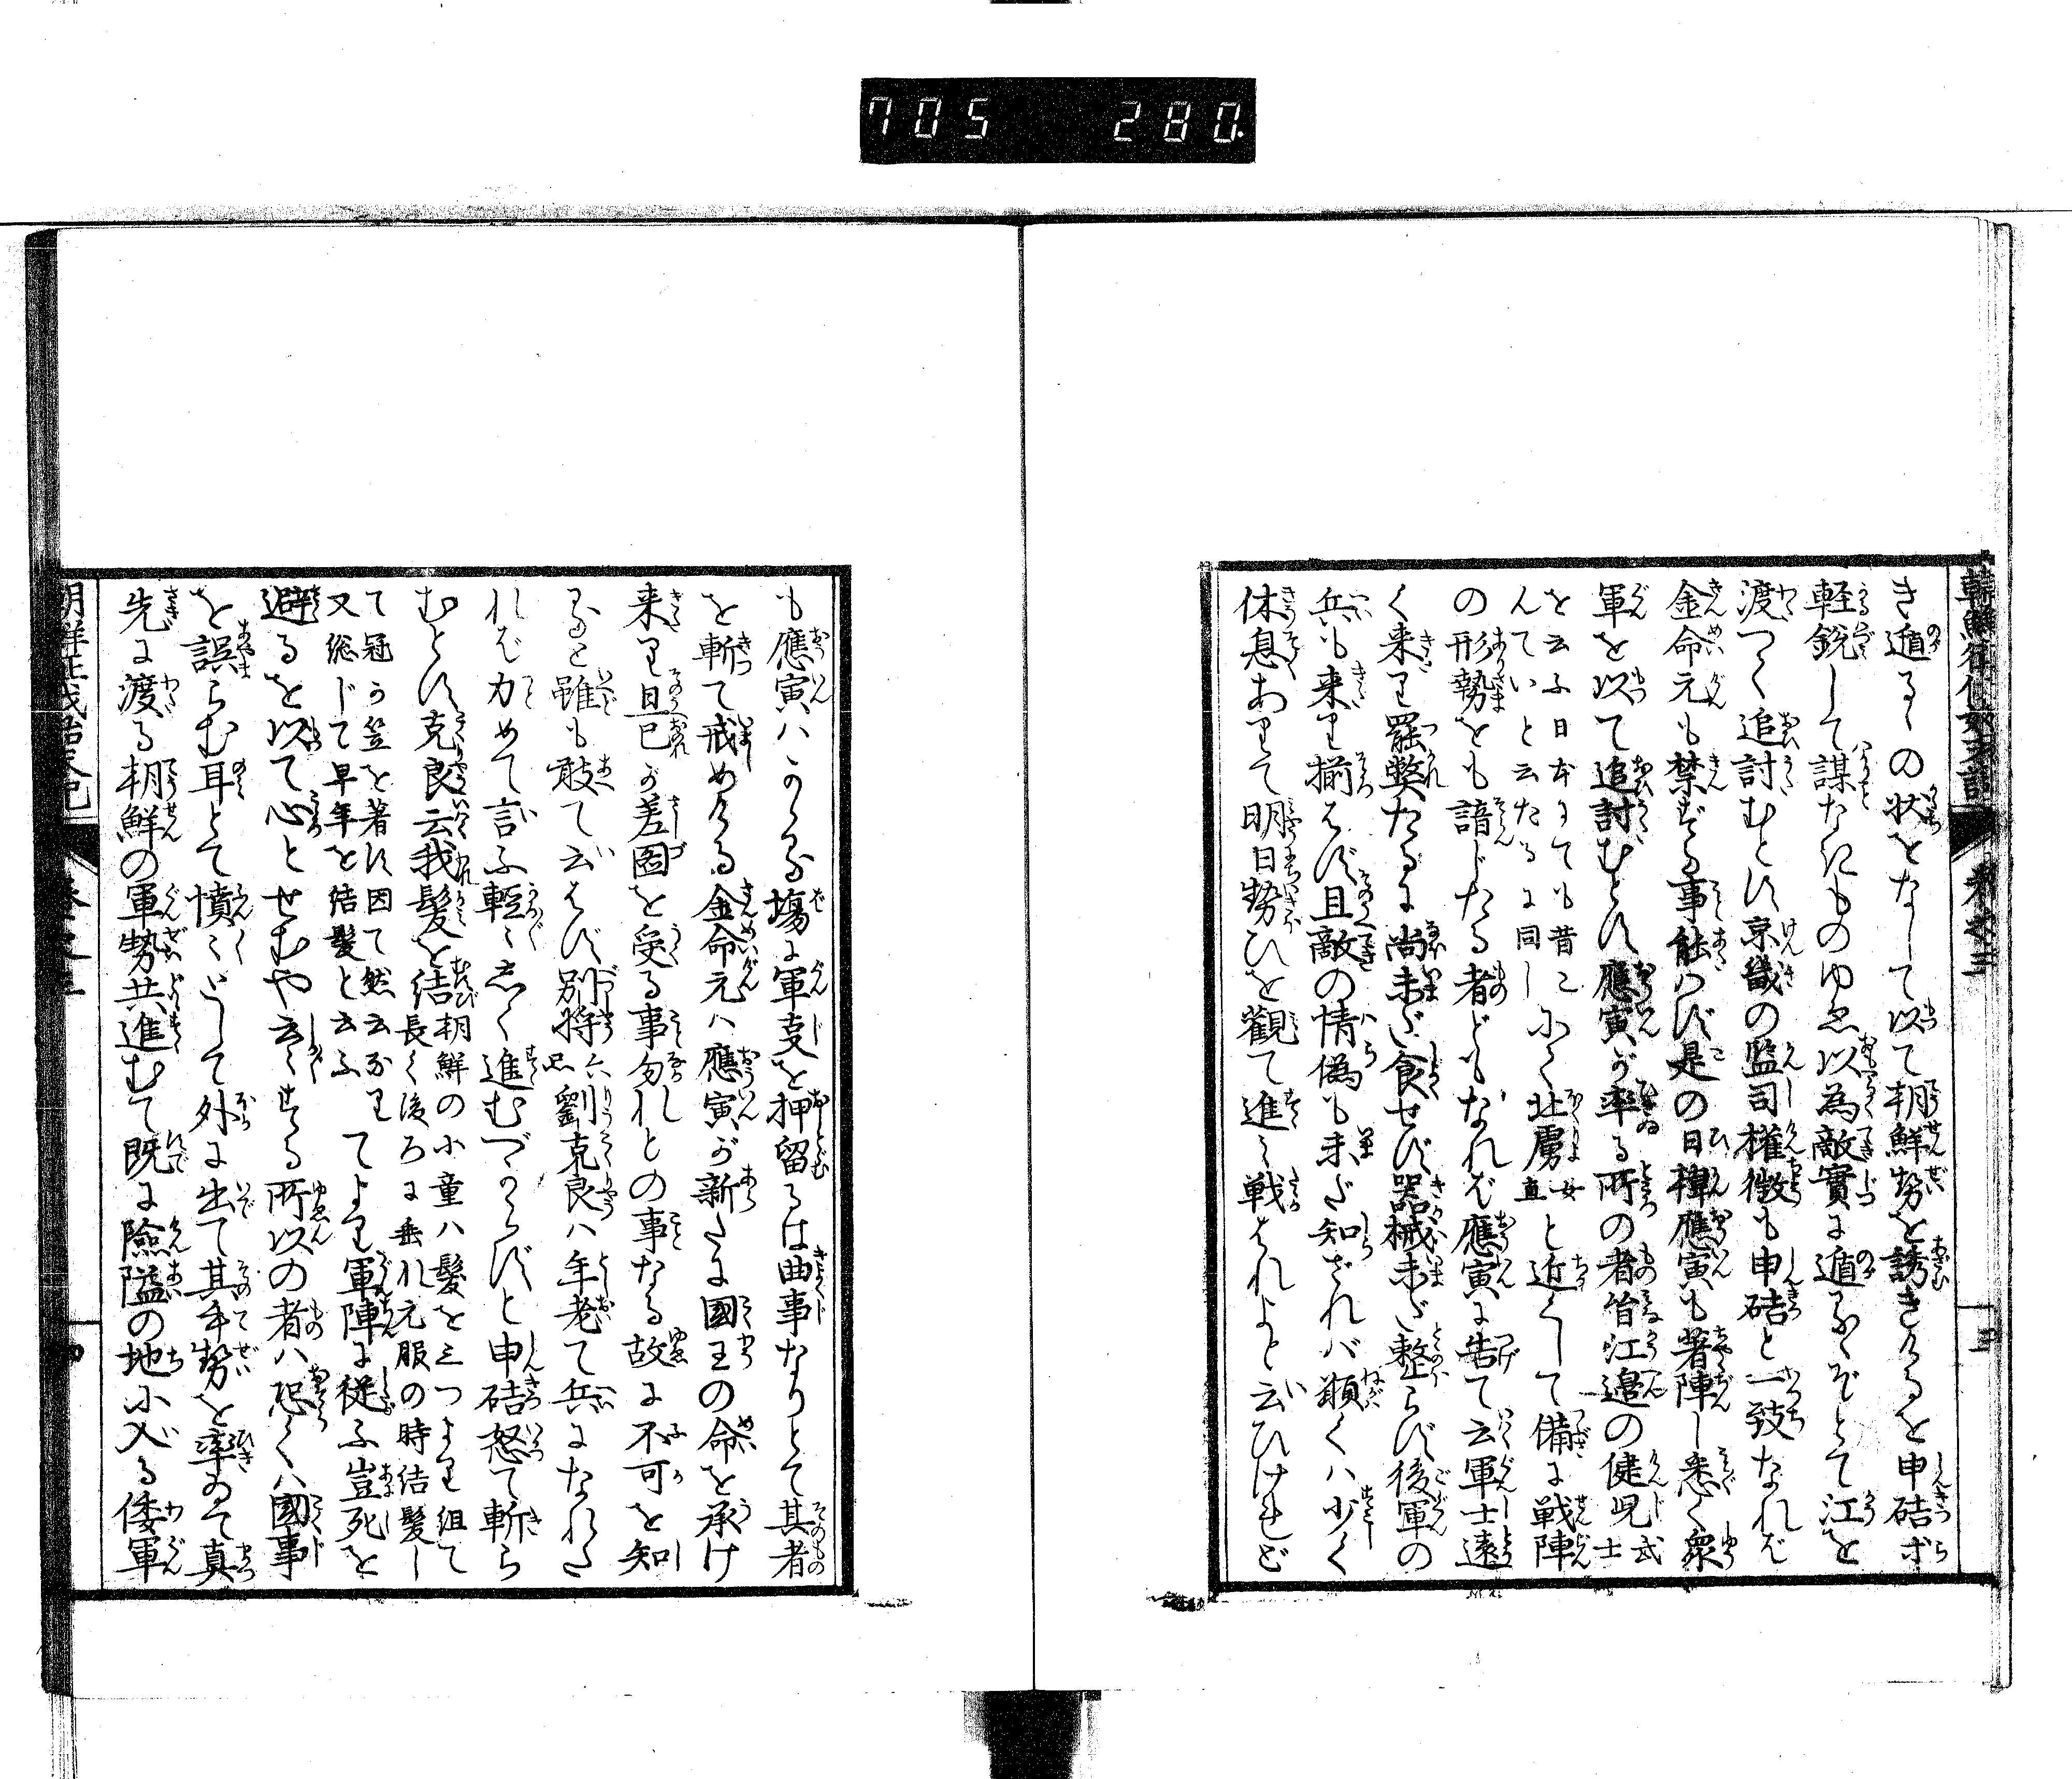 705 280
き遁るゝの状をなして以て朝鮮勢を誘きけるを申硈ボ
軽鋭して謀たにものゆゑ以為敵實に遁るぞとて江を
渡つく追討むとす京畿の監司權徴も申硈と一致なれば
金命元も禁ずる事能はず是の日韓應寅も著陣し悉く衆
軍を以て追討むとす應寅が率る所の者皆江邉の健児武士
を云ふ日本にても昔こ
んていと云たるに同し
北虜女直と近くして備に戦陣
の形勢をも諳じたる者どもなれば應寅に告て云軍士遠
く来て罷弊たるに尚未だ食せず器械未だ整らず後軍の
兵も来て揃はず且敵の情偽も未だ知ざれバ願くハ少く
休息ありて明日勢ひを観て進ミ戦はれよと云ひけれど
も應寅ハかゝる場に軍支を押留るは曲事なりとて其者
を斬て戒めける金命元ハ應寅が新たに國王の命を承け
来て且己が差圖を受る事勿れとの事なる故に不可を知
ると雖も敢て云はず別将劉克良ハ年老て兵になれた
れば力めて言ふ軽ゝしく進むづからずと申硈怒て斬ら
むとす克良云我髪を結
朝鮮の小童ハ髪を三つより組て
長く後ろに垂れ元服の時結髪し
て冠り笠を著す因て然云なり
又総じて早年を結髪と云ふ
てより軍陣に従ふ豈死を
避るを以て心とせむや云々する所以の者ハ恐くハ國事
を誤らむ耳とて憤々として外に出て其手勢を率ゐて真
先に渡る朝鮮の軍勢共進むて既に險隘の地に入る倭軍